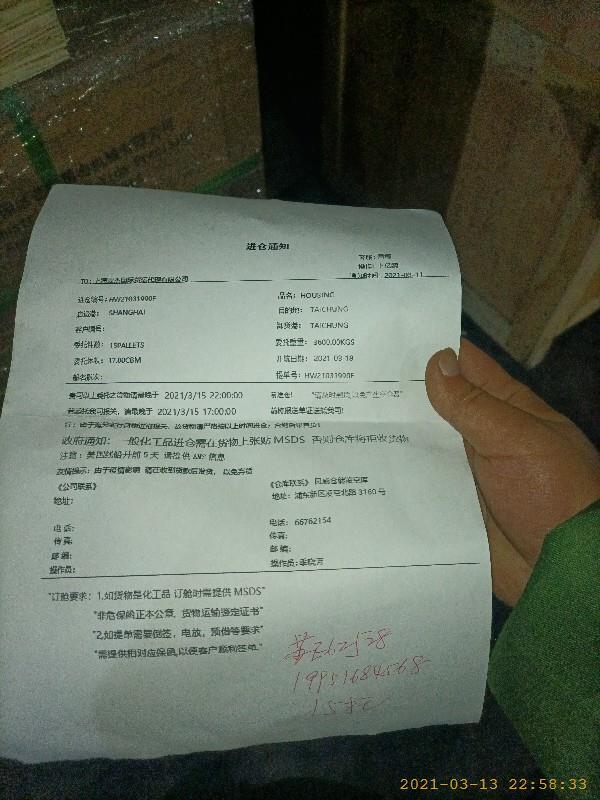 进仓通知
通知时间：2021-03-11
TO：上海 国际货运代理有限公司
进仓编号：HW21031990F
品名：HOUSING
启运港：SHANGHAI
目的地：TAICHUNG
客户编号：
卸货港：TAICHUNG
委托件数：15PALLETS
委托重量：3600.00KGS
委托体积：17.00CBM
开航日期：2021-03-18
船名航次：
提单号：HW21031990F
贵司以上委托之货物请最晚于 2021/3/15 22:00:00 前进仓！
若委托我司报关，请最晚于 2021/3/15 17:00:00 前将报送单证送给我司！
政府通知：一般化工品进仓需在货物上张贴 MSDS 否则仓库将拒收货物
注意：美国线船开前 5 天 请提供 AMS 信息
友情提示：由于疫情影响 请在收到货款后发货， 以免弃货
《公司联系》
《仓库联系》
地址：
地址：浦东新区凌空北路 3160 号
电 话：
电话：66762154
传 真：
传真：
邮 编：
邮 编：
操作员：
操作员：
"订舱要求：1,如货物是化工品 订舱时需提供 MSDS"
"非危保函正本公章、货物运输鉴定证书"
"2,如提单需要倒签，电放，预借等要求"
"需提供相对应保函,以便客户顺利签单."
2021-03-13 22:58:33